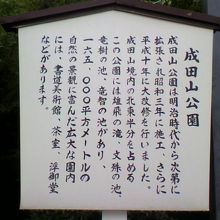 成田山公園
成田山公園は明治時代から次第に
拡張され昭和三年に施工、さらに
平成十年に大改修を行いました。
成田山境内の北東半分を占める
この公園には雄飛の滝、文殊の池、
竜樹の池、竜智の池があり、
一六五、〇〇〇平方メートルの
自然の景観に富んだ広大な園内
には、書道美術館、茶室、浮御堂
などがあります。